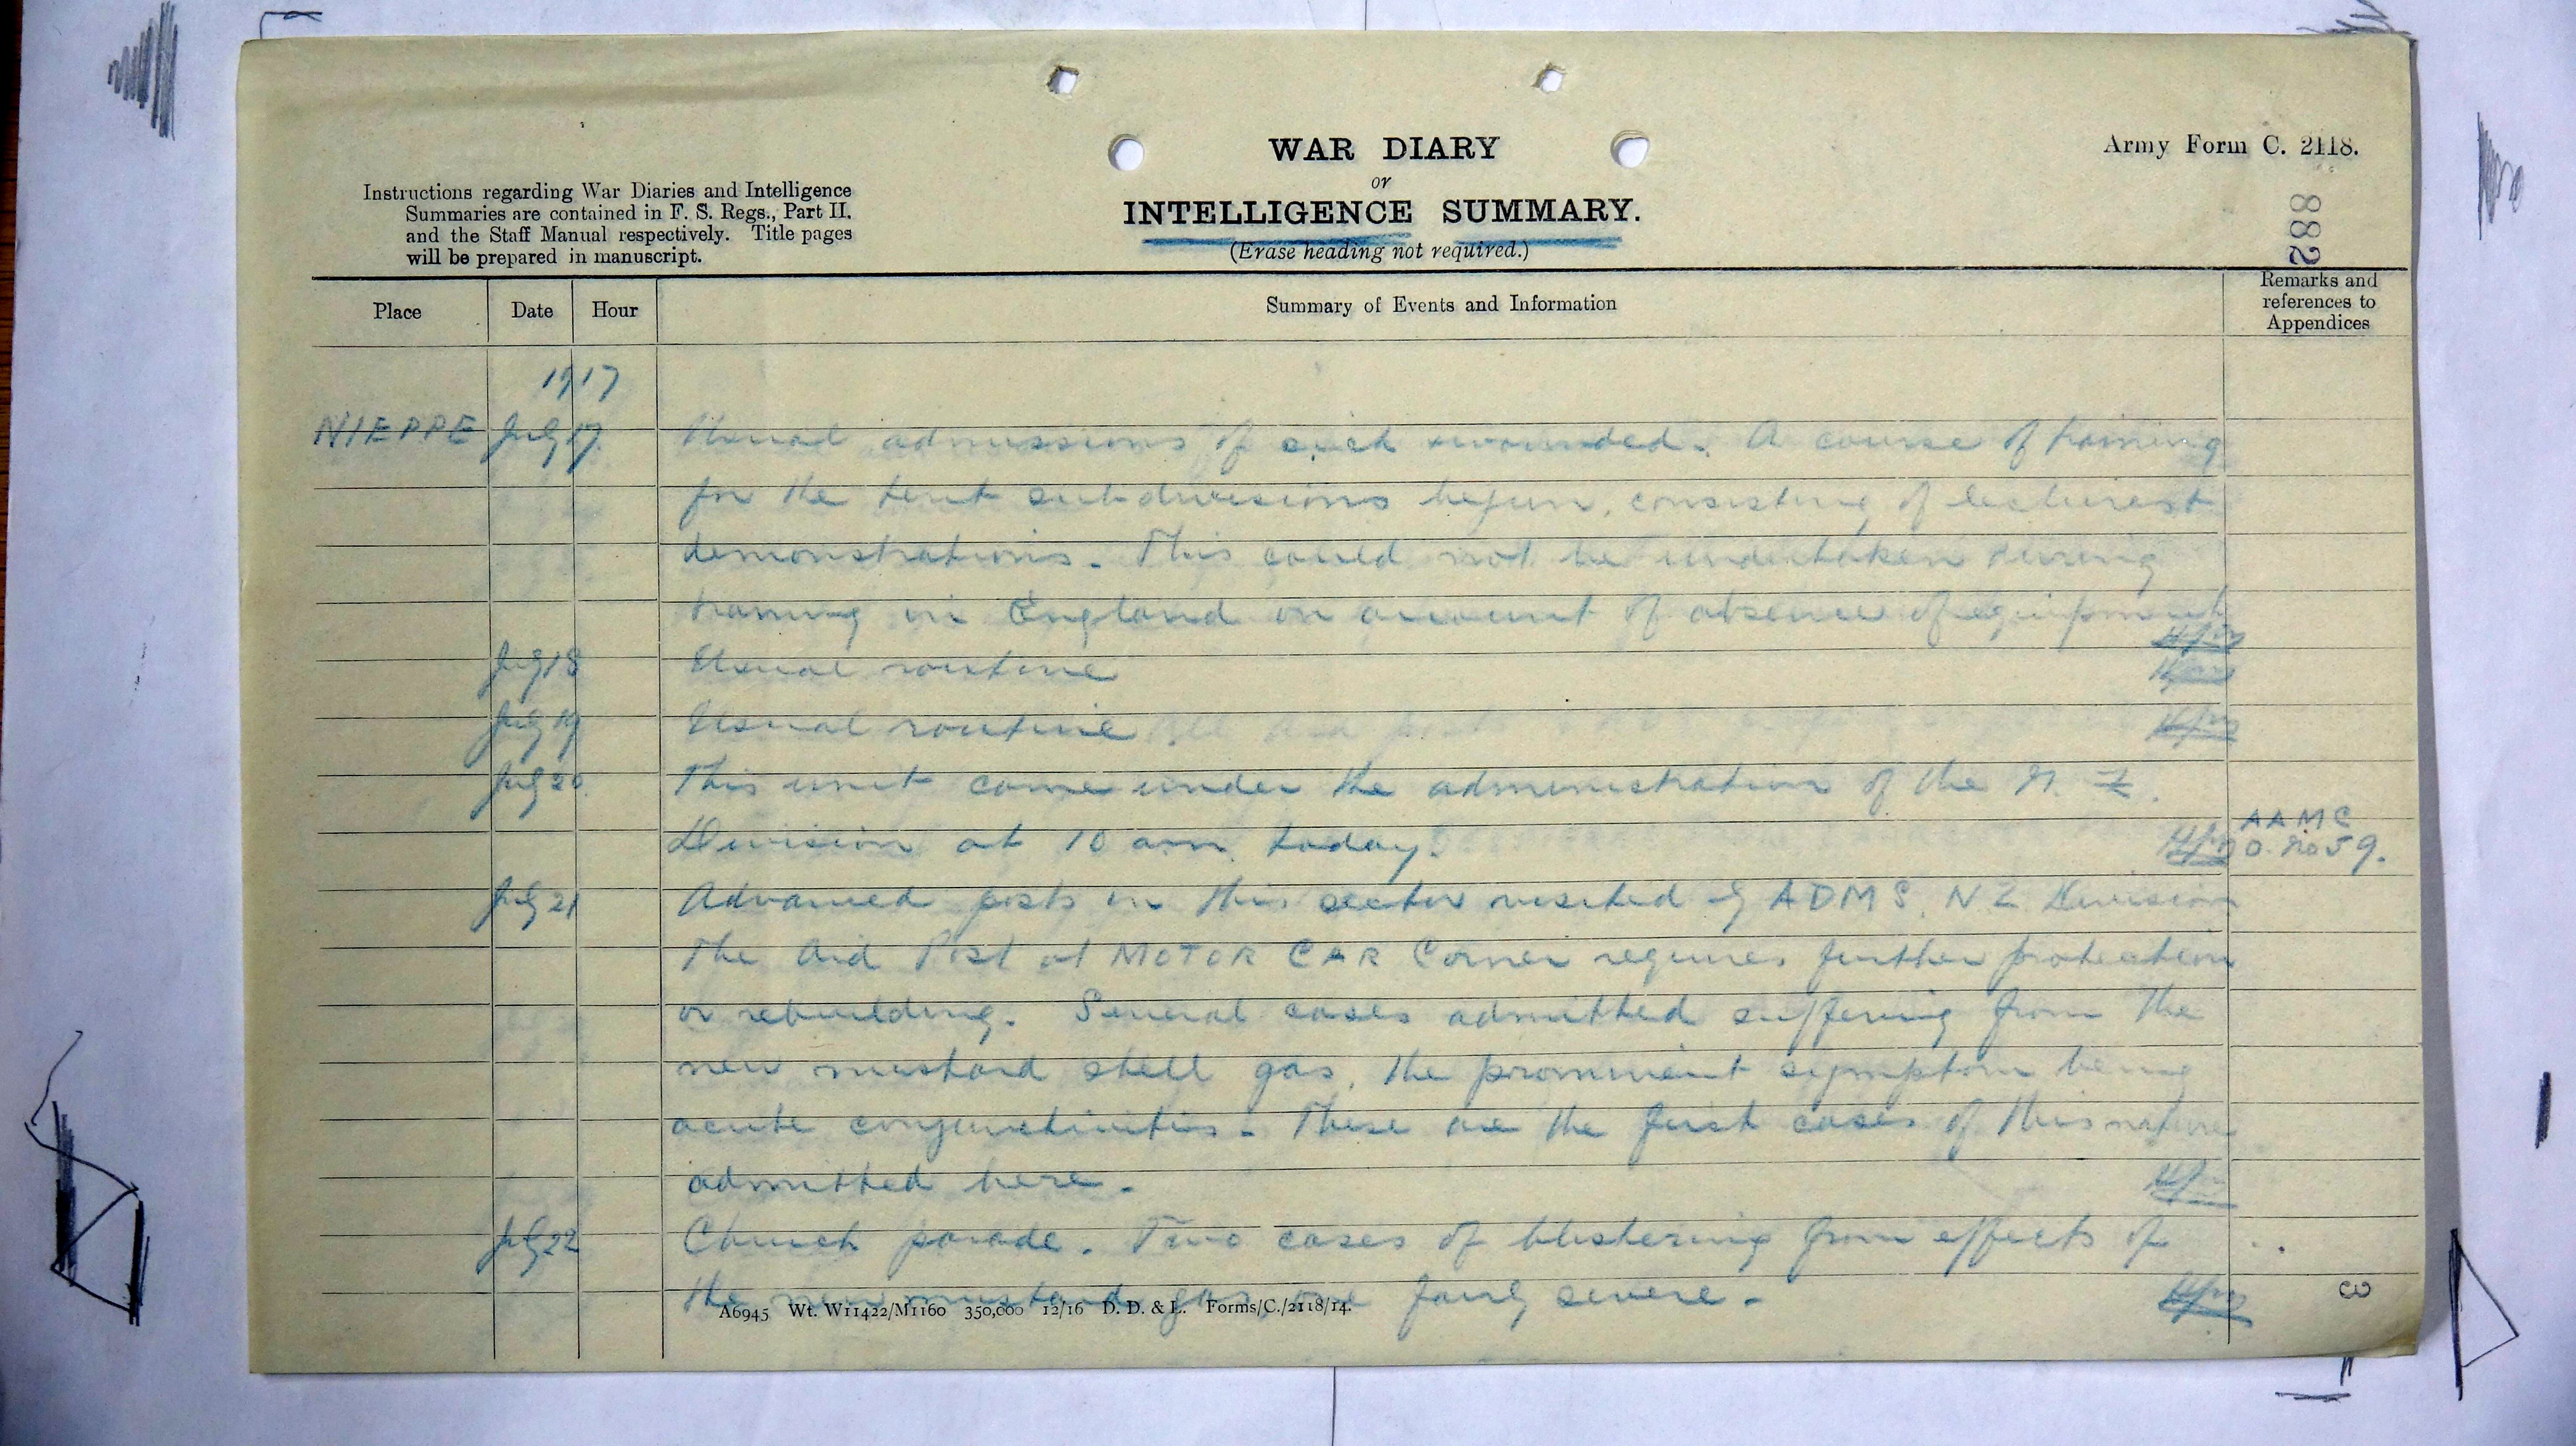 WAR DIARY
or
INTELLIGENCE SUMMARY.
(Erase heading not required.)
Army Form C. 2118.
882
Instructions regarding War Diaries and Intelligence
Summaries are contained in F. S. Regs., Part II.
and the Staff Manual respectively. Title pages
will be prepared in manuscript.
Place Date Hour Summary of Events and Information Remarks and references to Appendices
1917
NIEPPE July 17. Usual admissions of sick + wounded. A course of training
for the tent subdivisions begun, consisting of lectures +
demonstrations. This could not be undertaken during
training in England on account of absence of equipment
July 18 Usual routine
July 19 Usual routine.
July 20. This unit came under the administration of the N. Z.
Division at 10 am. today. AAMC
O. No 59.
July 21 Advanced posts in this sector visited by ADMS, NZ Division
The Aid Post at MOTOR CAR Corner requires further protection
or rebuilding. Several cases admitted suffering from the
new mustard shell gas, the prominent symptom being
acute conjunctivitis. These are the first cases of this nature
admitted here.
July 22 Church parade. Two cases of blistering from effects of
the new mustard gas, one fairly severe.
A6945 Wt. W11422/M1160 350,000 12/16 D. D. & L. Forms/C./2118/14.
3